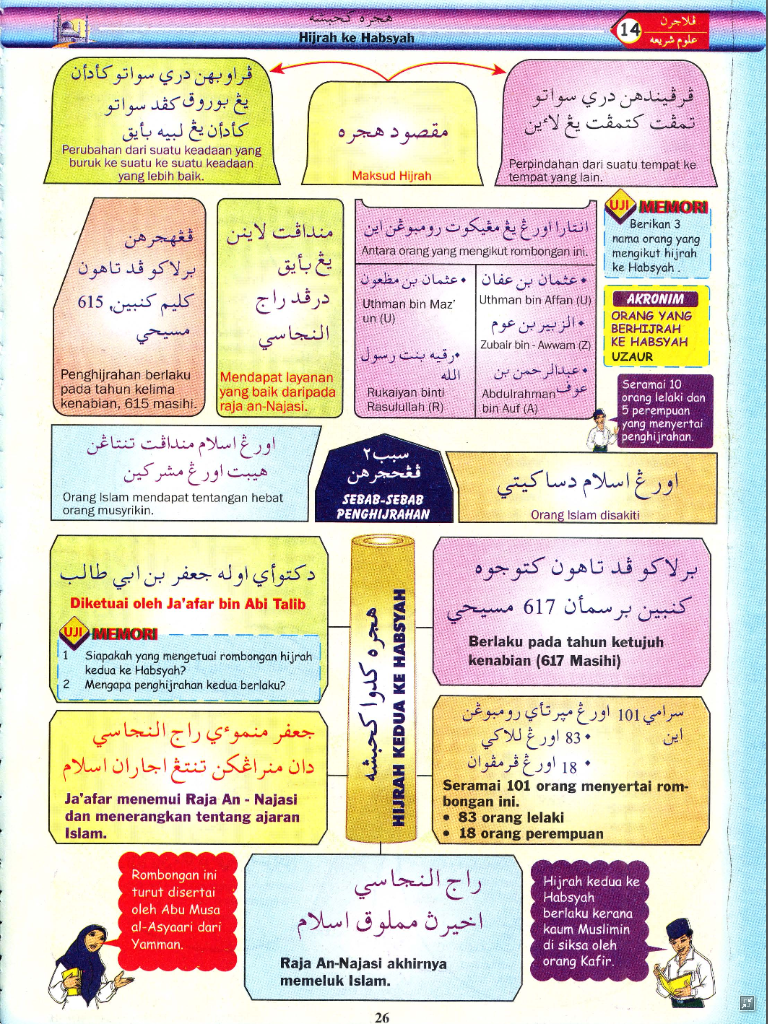 هجره كحبشه
Hijrah ke Habsyah
14
ڤلاجرن
علوم شريعه
ڤراوبهن دري سواتو كأدأن
يڠ بوروق كڤد سواتو
كأدأن يڠ لبيه بأيق
Perubahan dari suatu keadaan yang
buruk ke suatu ke suatu keadaan
yang lebih baik.
مقصود هجره
Maksud Hijrah
ڤرڤيندهن دري سواتو
تمڤت كتمڤت يڠ لاءين
Perpindahan dari suatu tempat ke
tempat yang lain.
ڤڠهجرهن
برلاكو ڤد تاهون
كليم كنبين, 615
مسيحي
Penghijrahan berlaku
pada tahun kelima
kenabian, 615 masihi.
منداڤت لاينن
يڠ بأيق
درڤد راج
النجاسي
Mendapat layanan
yang baik daripada
raja an-Najasi.
انتارا اورڠ يڠ مڠيكوت رومبوڠن اين
Antara orang yang mengikut rombongan ini.
• عثمان بن مظعون
Uthman bin Maz'
un (U)
• رقيه بنت رسول
الله
Rukaiyan binti
Rasulullah (R)
• عثمان بن عفان
Uthman bin Affan (U)
• الزبير بن عوم
Zubair bin - Awwam (Z)
• عبدالرحمن بن
عوف
Abdulrahman
bin Auf (A)
UJI MEMORI
Berikan 3
nama orang yang
mengikut hijrah
ke Habsyah .
AKRONIM
ORANG YANG
BERHIJRAH
KE HABSYAH
UZAUR
Seramai 10
orang lelaki dan
5 perempuan
yang menyertai
penghijrahan.
اورڠ اسلام منداڤت تنتاڠن
هيبت اورڠ مشركين
Orang Islam mendapat tentangan hebat
orang musyrikin.
سبب٢
ڤڠحجرهن
SEBAB-SEBAB
PENGHIJRAHAN
اورڠ اسلام دساكيتي
Orang Islam disakiti
دكتوأي اوله جعفر بن ابي طالب
Diketuai oleh Ja'afar bin Abi Talib
UJI MEMORI
1 Siapakah yang mengetuai rombongan hijrah
kedua ke Habsyah?
2 Mengapa penghijrahan kedua berlaku?
هجره كدوا كحبشه
HIJRAH KEDUA KE HABSYAH
برلاكو ڤد تاهون كتوجوه
كنبين برسمأن 617 مسيحي
Berlaku pada tahun ketujuh
kenabian (617 Masihi)
جعفر منموءي راج النجاسي
دان منراڠكن تنتڠ اجاران اسلام
Ja'afar menemui Raja An - Najasi
dan menerangkan tentang ajaran
Islam.
سرامي 101 اورڠ مڽرتأي رومبوڠن
اين
• 83 اورڠ للاكي
• 18 اورڠ ڤرمڤوان
Seramai 101 orang menyertai rom-
bongan ini.
• 83 orang lelaki
• 18 orang perempuan
Rombongan ini
turut disertai
oleh Abu Musa
al-Asyaari dari
Yamman.
راج النجاسي
اخيرڽ مملوق اسلام
Raja An-Najasi akhirnya
memeluk Islam.
Hijrah kedua ke
Habsyah
berlaku kerana
kaum Muslimin
di siksa oleh
orang Kafir.
26